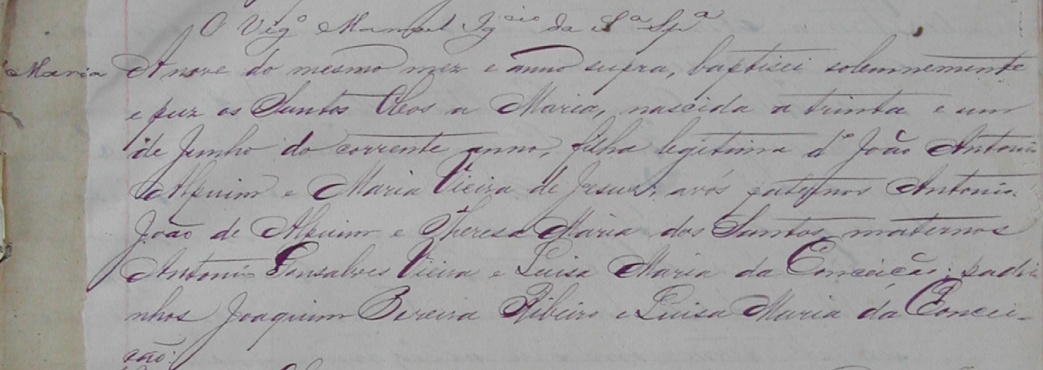 O Vigº Manoel Igcio da Sª Spª
Maria A nove do mesmo mez e anno supra, baptisei solemnemente
e puz os Santos Oleos a Maria, nascida a trinta e um
de Junho do corrente anno, filha legitima dº João Antonio
Alfuim e Maria Vieira de Jesus, avós paternos Antonio
João de Alfuim e Theresa Maria dos Santos, maternos
Antonio Gonsalves Vieira e Luisa Maria da Conceicão; padri
nhos Joaquim Pereira Ribeiro e Luisa Maria da Concei-
cão.